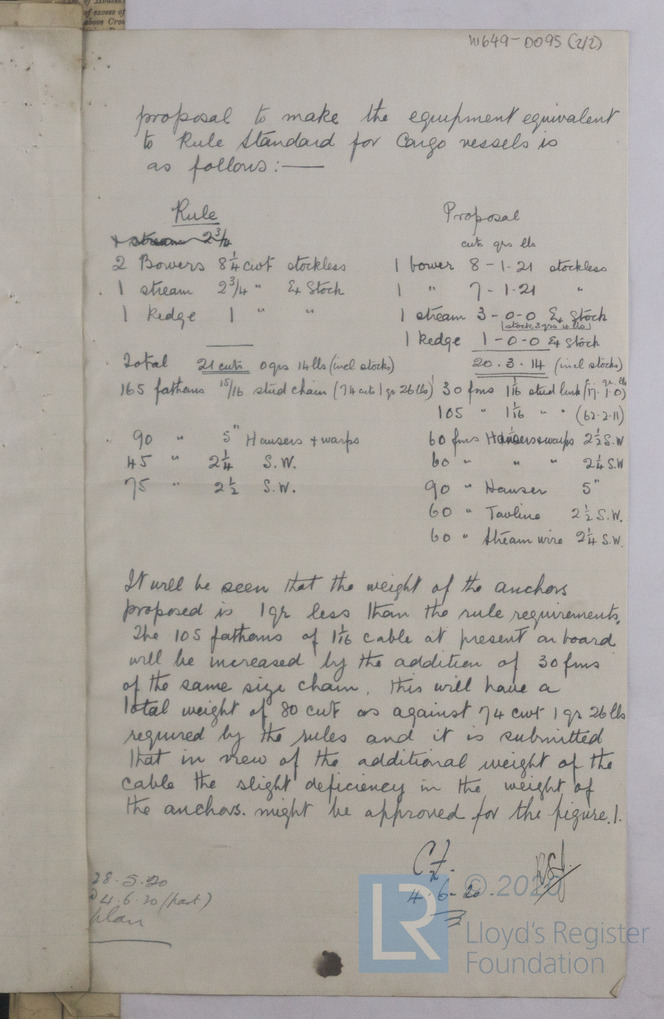 W649-0095 (2/2)
of excess of
above Cros
proposal to make the equipment equivalent
to Rule Standard for Cargo vessels is
as follows:—
Rule
Proposal
stream 2 3/4
cwts qrs lbs
2 Bowers 8 1/4 cwt stockless
1 bower 8-1-21 stockless
1 stream 2 3/4 " Ex Stock
1 " 7-1-21 "
1 Kedge 1 " "
1 stream 3-0-0 Ex Stock
1 Kedge 1-0-0 Ex Stock
Total 21 cwts 0 qrs 14 lbs (incl stocks)
20.3.14 (incl stocks)
165 fathoms 15/16 stud chain (74 cwts 1 qr 26 lbs)
30 fms 1 1/16 stud link (17.1.0)
105 " 1 1/16 " " (62-2-11)
90 " 5" Hawsers & warps
60 fms Hawsers & warps 2 1/2 S.W
45 " 2 1/4 S.W.
60 " " " 2 1/4 S.W
75 " 2 1/2 S.W.
90 " Hawser 5"
60 " Towline 2 1/2 S.W.
60 " Stream wire 2 1/4 S.W.
It will be seen that the weight of the anchors
proposed is 1 qr less than the rule requirements.
The 105 fathoms of 1 1/16 cable at present on board
will be increased by the addition of 30 fms
of the same size chain, this will have a
total weight of 80 cwt as against 74 cwt 1 qr 26 lbs
required by the rules and it is submitted
that in view of the additional weight of the
cable the slight deficiency in the weight of
the anchors. might be approved for the figure. 1.
28.5.20
4.6.20 (part)
plan
4-6-20
© 2020
LR
Lloyd's Register
Foundation